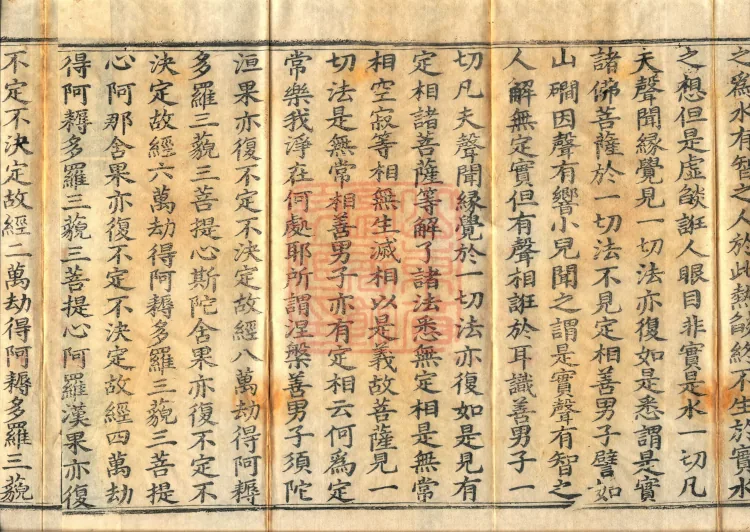 之為水有智之人於此熱𦦨終不生於實水
之想但是虛𦦨誑人眼目非實是水一切凡
夫聲聞緣覺見一切法亦復如是悉謂是實
諸佛菩薩於一切法不見定相善男子譬如
山礀因聲有響小兒聞之謂是實聲有智之
人解無定實但有聲相誑於耳識善男子一
切凡夫聲聞緣覺於一切法亦復如是見有
定相諸菩薩等解了諸法悉無定相是無常
相空寂等相無生滅相以是義故菩薩見一
切法是無常相善男子亦有定相云何為定
常樂我淨在何處耶所謂涅槃善男子須陀
洹果亦復不定不決定故經八萬劫得阿耨
多羅三藐三菩提心斯陀含果亦復不定不
決定故經六萬劫得阿耨多羅三藐三菩提
心阿那含果亦復不定不決定故經四萬劫
得阿耨多羅三藐三菩提心阿羅漢果亦復
不定不決定故經二萬劫得阿耨多羅三藐